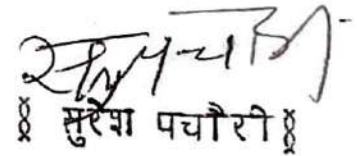 सुरेश पचौरी